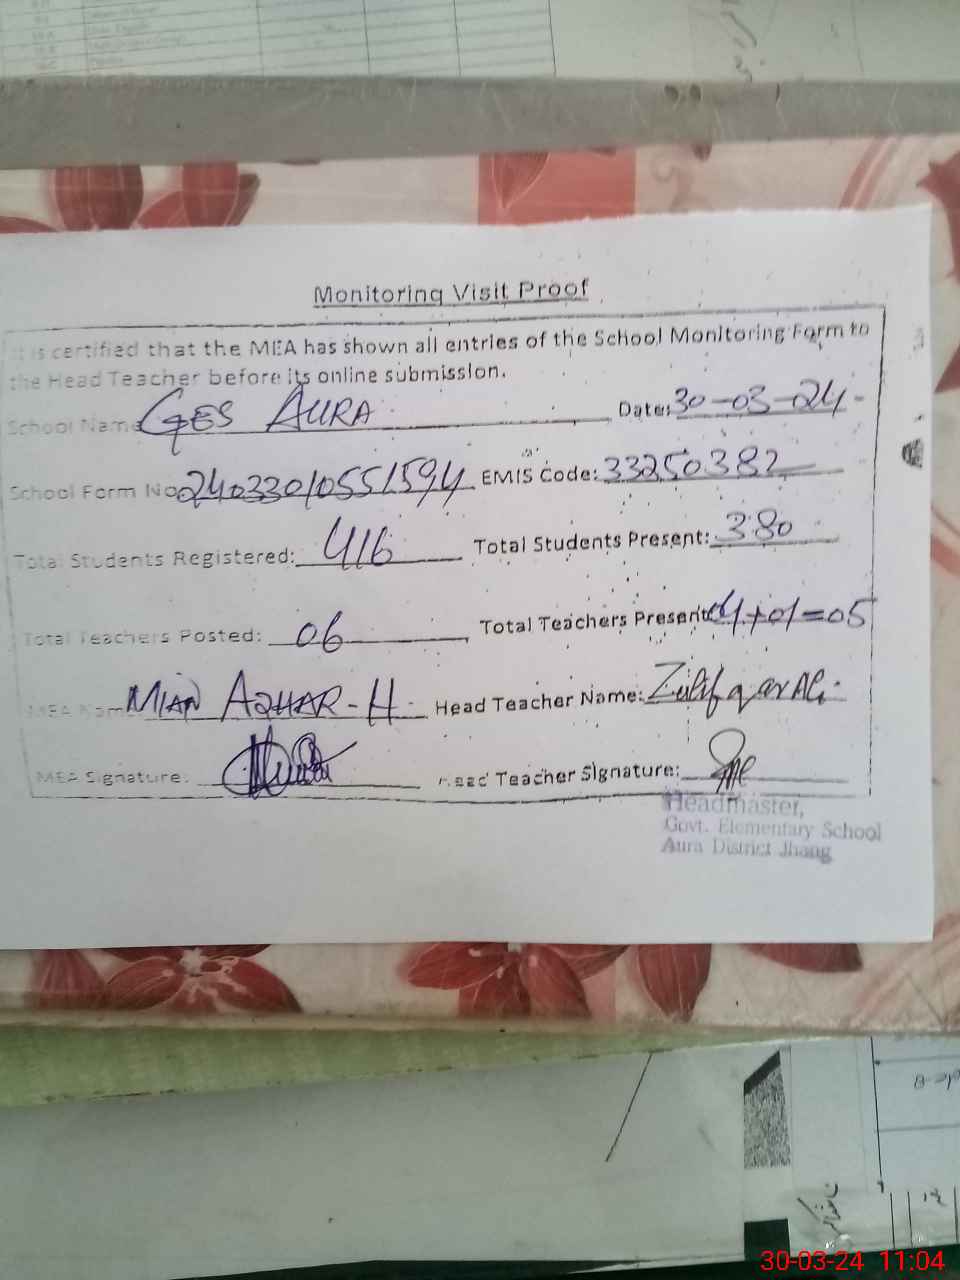 Monitoring Visit Proof
It is certified that the MEA has shown all entries of the School Monitoring Form to
the Head Teacher before its online submission.
School Name GES AURA Date: 30-03-24
School Form No 24033010551594 EMIS Code: 33250382
Total Students Registered: 416 Total Students Present: 380
Total Teachers Posted: 06 Total Teachers Present: 04+01=05
MEA Name MIAN AZHAR-H Head Teacher Name: Zulifqar Ali
MEA Signature: Head Teacher Signature:
Headmaster,
Govt. Elementary School
Aura District Jhang
30-03-24 11:04